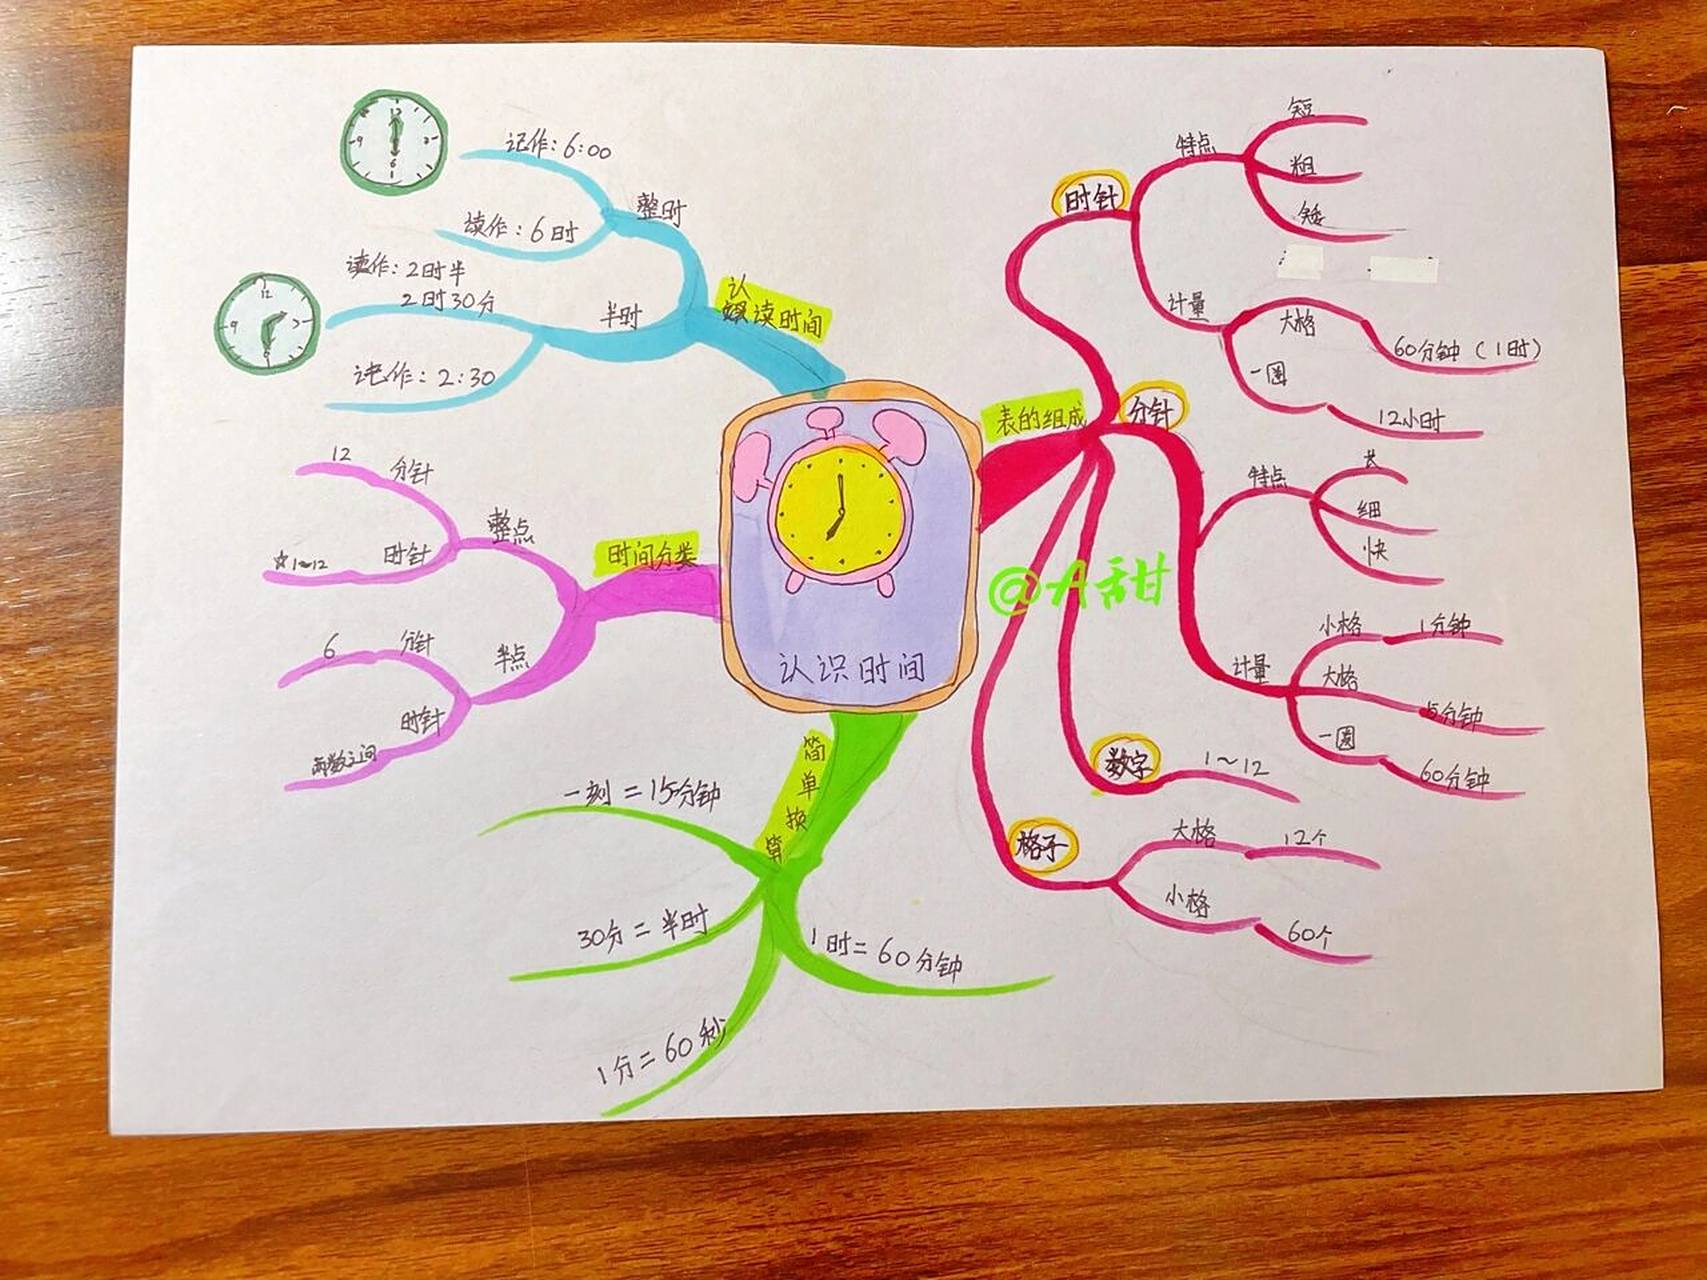 认识时间
表的组成
时针
特点
短
粗
矮
计量
大格
60分钟（1时）
一圈
12小时
分针
特点
长
细
快
计量
小格
1分钟
大格
5分钟
一圈
60分钟
数字
1～12
格子
大格
12个
小格
60个
简单换算
1时=60分钟
1分=60秒
30分=半时
一刻=15分钟
时间分类
整点
分针
12
时针
☆1～12
半点
分针
6
时针
两数之间
认读时间
整时
记作：6:00
读作：6时
半时
读作：2时半
2时30分
记作：2:30
12
9
6
12
9
@A甜